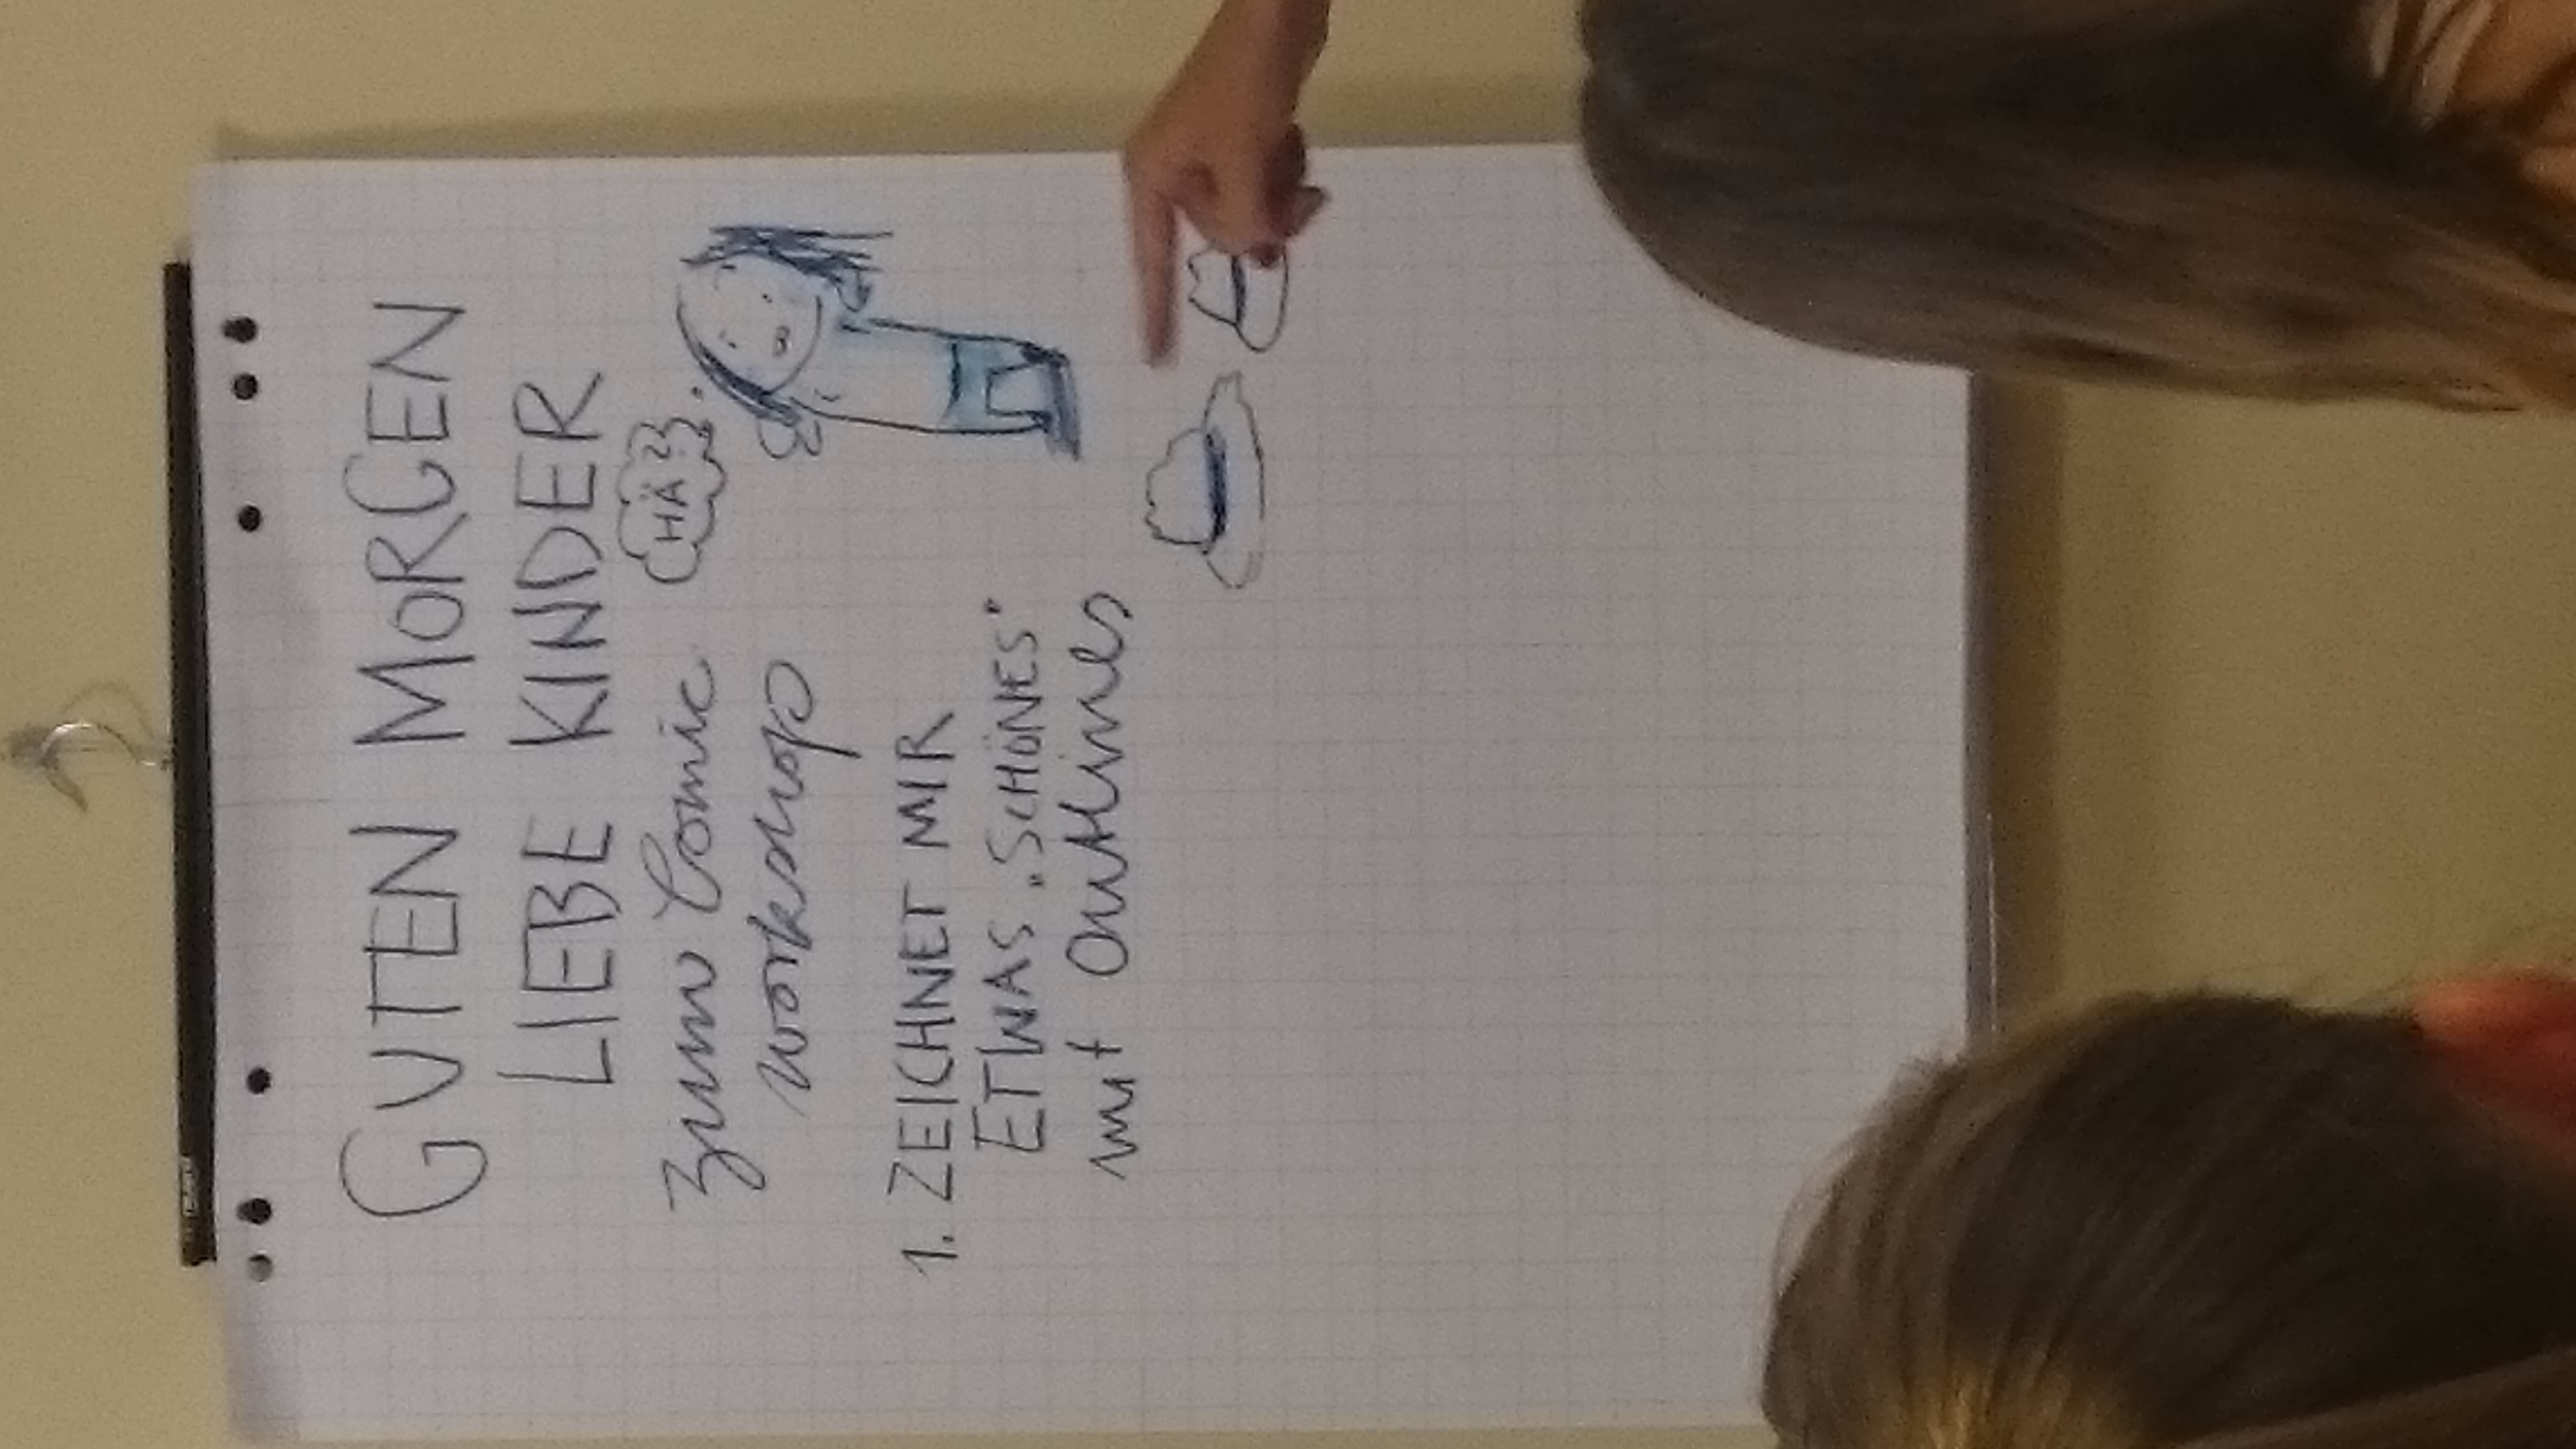 GUTEN MORGEN
LIEBE KINDER
zum Comic
workshop
HÄ??
1. ZEICHNET MIR
ETWAS „SCHÖNES“
mit Outlines